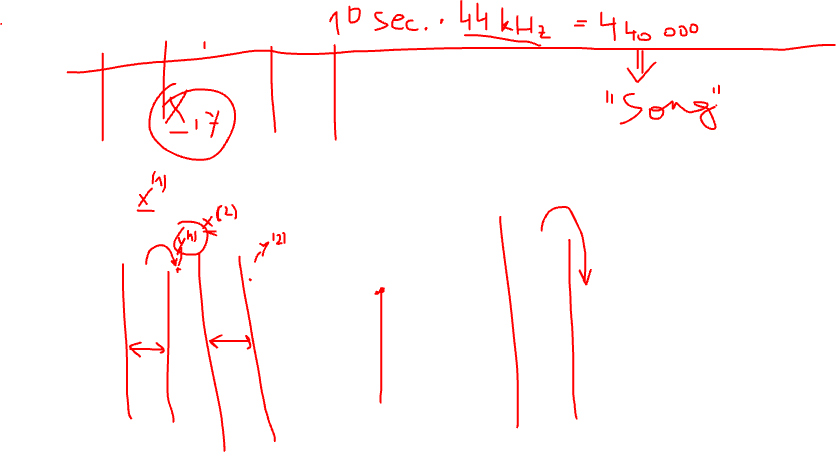 10 sec. · 44 kHz = 440 000
"Song"
x, y
x⁽¹⁾
y⁽¹⁾ x⁽²⁾
y⁽²⁾